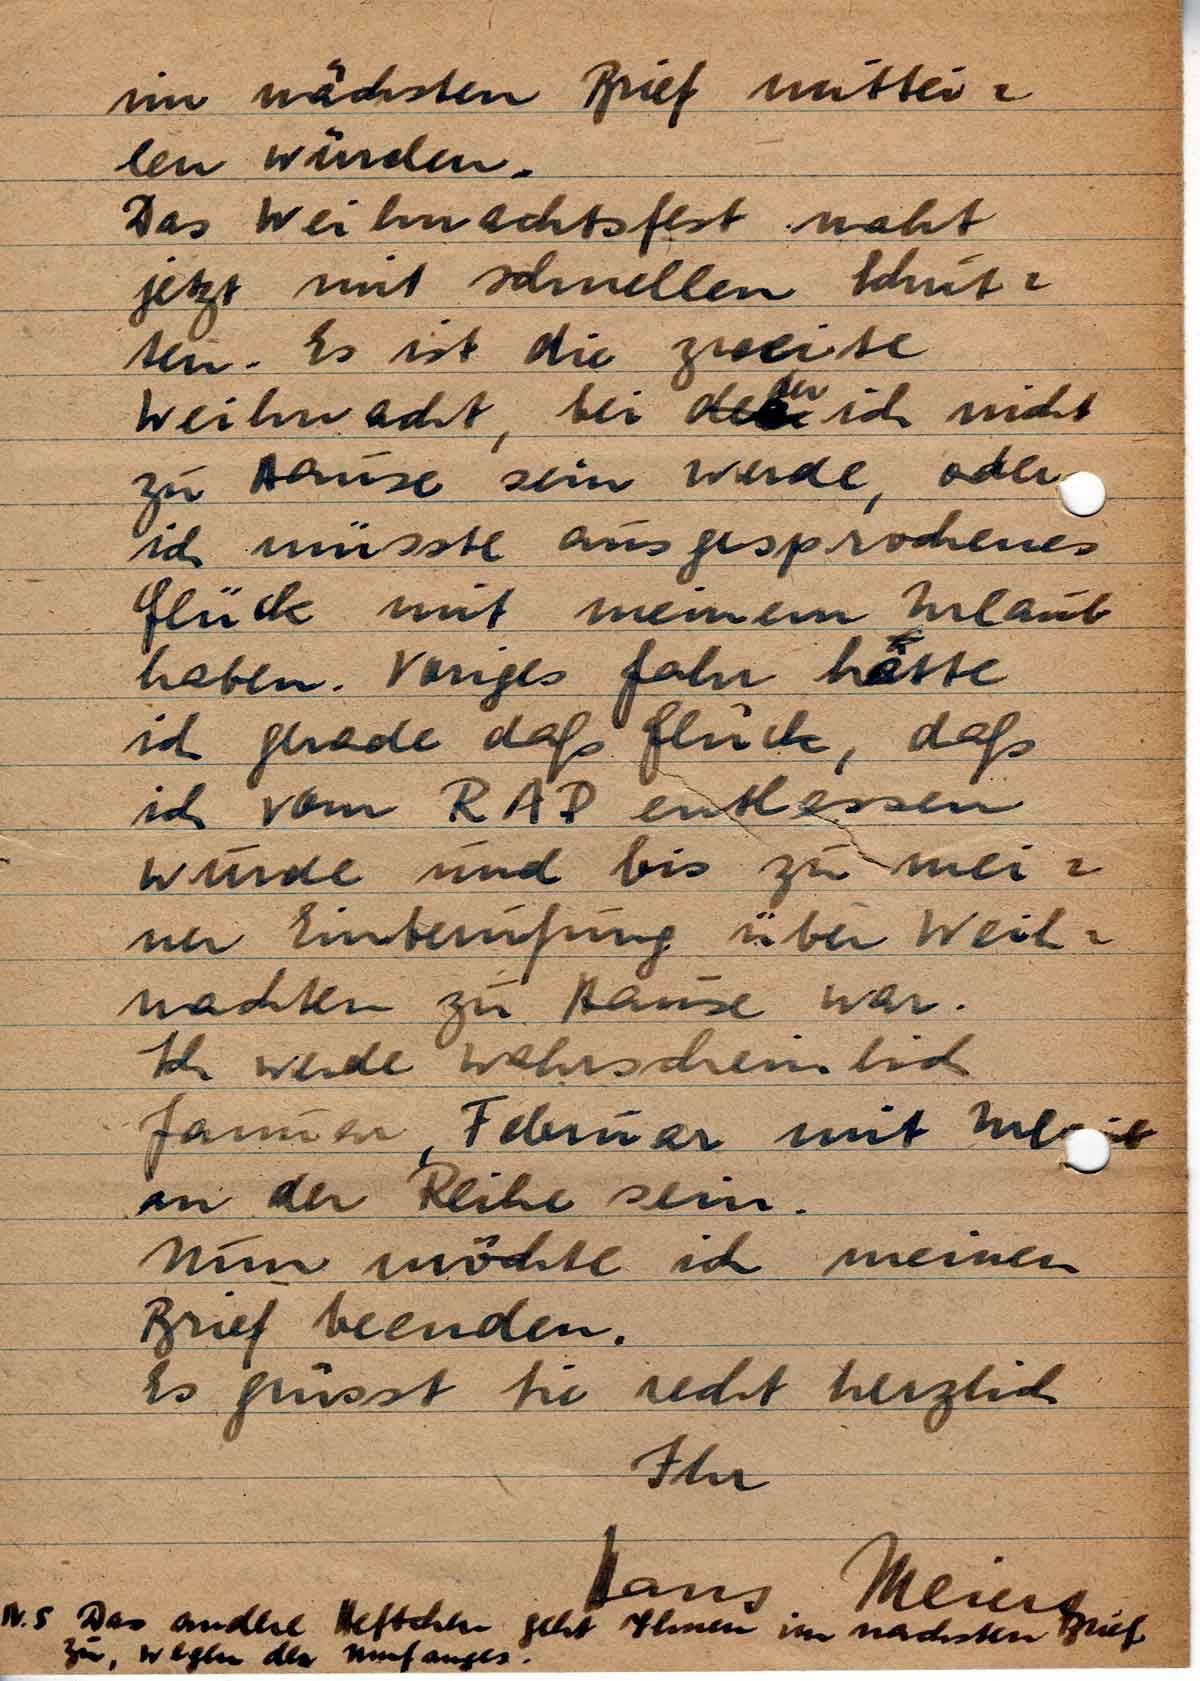 im nächsten Brief mittei=
len würden.
Das Weihnachtsfest naht
jetzt mit schnellen Schrit=
ten. Es ist die zweite
Weihnacht, bei der ich nicht
zu Hause sein werde, oder
ich müsste ausgesprochenes
Glück mit meinem Urlaub
haben. Voriges Jahr hatte
ich gerade daß Glück, daß
ich vom RAD entlassen
wurde und bis zu mei=
ner Einberufung über Weih=
nachten zu Hause war.
Ich werde wahrscheinlich
Januar, Februar mit Urlaub
an der Reihe sein.
Nun möchte ich meinen
Brief beenden.
Es grüsst Sie recht herzlich
Ihr
Hans Meiers
N.S Das andere Heftchen geht Ihnen im nächsten Brief
zu, wegen des Umfanges.